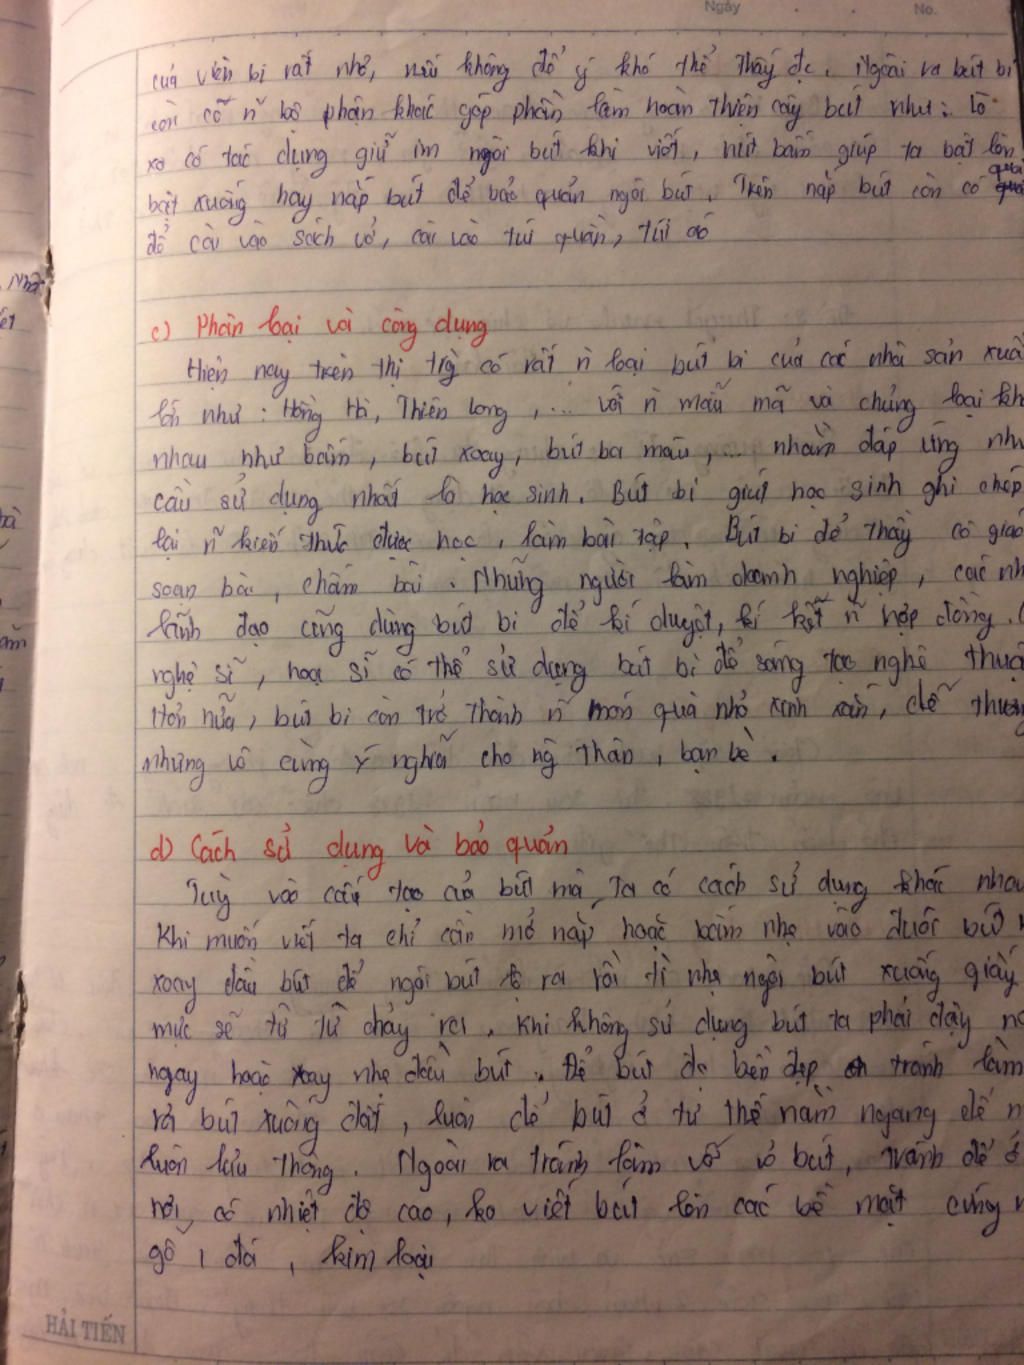 Ngày . . No.
của viên bi rất nhỏ, nếu không để ý khó thể thấy đc. Ngoài ra bút bi
còn có ~ bộ phận khác góp phần làm hoàn thiện cây bút như: lò
xo có tác dụng giữ im ngòi bút khi viết, nút bấm giúp ta bật lên
bật xuống hay nắp bút để bảo quản ngòi bút. Trên nắp bút còn có quai
để cài vào sách vở, cài vào túi quần, túi áo
c) Phân loại và công dụng
Hiện nay trên thị trg` có rất n` loại bút bi của các nhà sản xuấ
lớn như: Hồng Hà, Thiên Long, ... với n` mẫu mã và chủng loại kh
nhau như bấm, bút xoay, bút ba màu, ... nhằm đáp ứng nhu
cầu sử dụng nhất là học sinh. Bút bi giút học sinh ghi chép
lại ~ kiến thức được học, làm bài tập. Bút bi để thầy cô giáo
soạn bài, chấm bài. Những người làm doanh nghiệp, các nh
lãnh đạo cũng dùng bút bi để kí duyệt, kí kết ~ hợp đồng. (
nghệ sĩ, hoạ sĩ có thể sử dụng bút bi để sáng tạo nghệ thuậ
Hơn nữa, bút bi còn trở thành ~ món quà nhỏ xinh xắn, dễ thươn
nhưng vô cùng ý nghĩa cho ng` thân, bạn bè.
d) Cách sử dụng và bảo quản
Tuỳ vào cấu tạo của bút mà ta có cách sử dụng khác nhau
Khi muốn viết ta chỉ cần mở nắp hoặc bấm nhẹ vào đuôi bút
xoay đầu bút để ngòi bút lộ ra rồi tì nhẹ ngòi bút xuống giấy
mực sẽ từ từ chảy ra. Khi không sử dụng bút ta phải đậy n
ngay hoặc xoay nhẹ đầu bút. Để bút đc bền đẹp tránh làm
rơi bút xuống đất, luôn để bút ở tư thế nằm ngang để m
luôn lưu thông. Ngoài ra tránh làm vỡ vỏ bút, tránh để ở
nơi có nhiệt độ cao, ko viết bút lên các bề mặt cứng n
gỗ, đá, kim loại
HẢI TIẾN